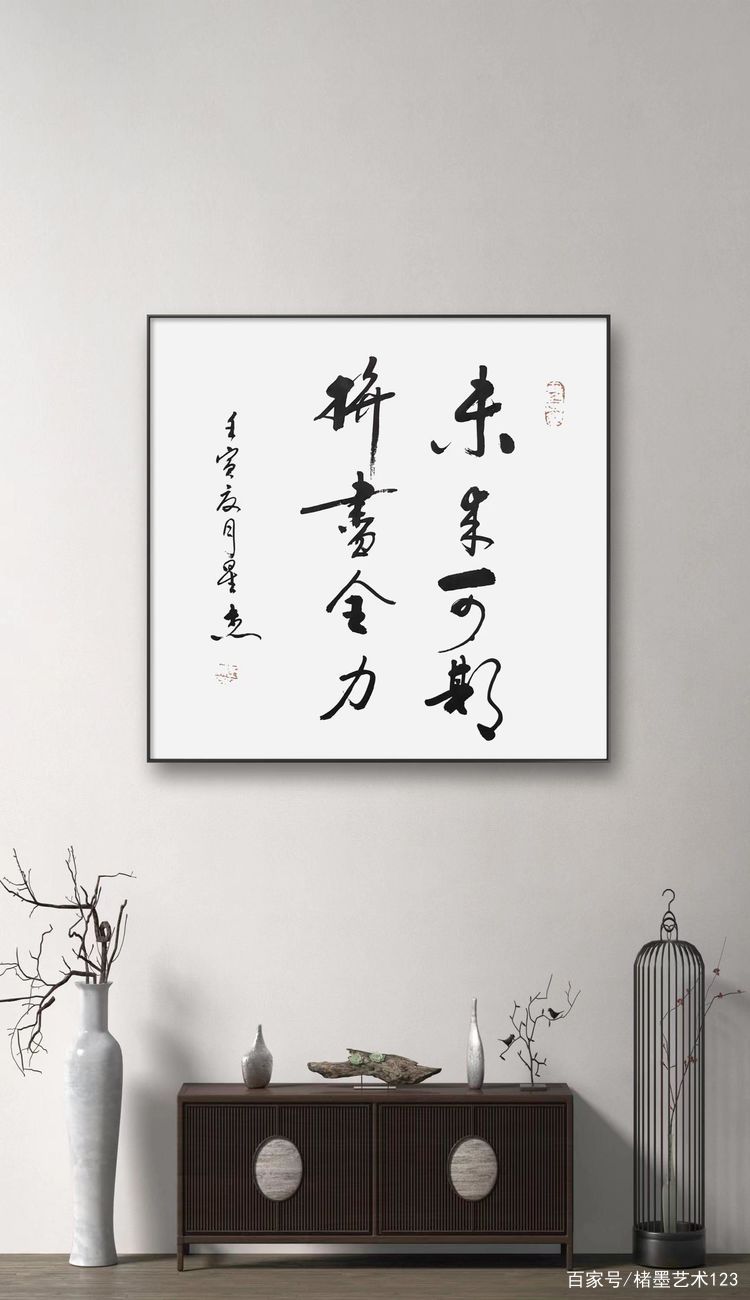 未来可期
拼盡全力
壬寅夏月星杰
百家号/楮墨艺术123